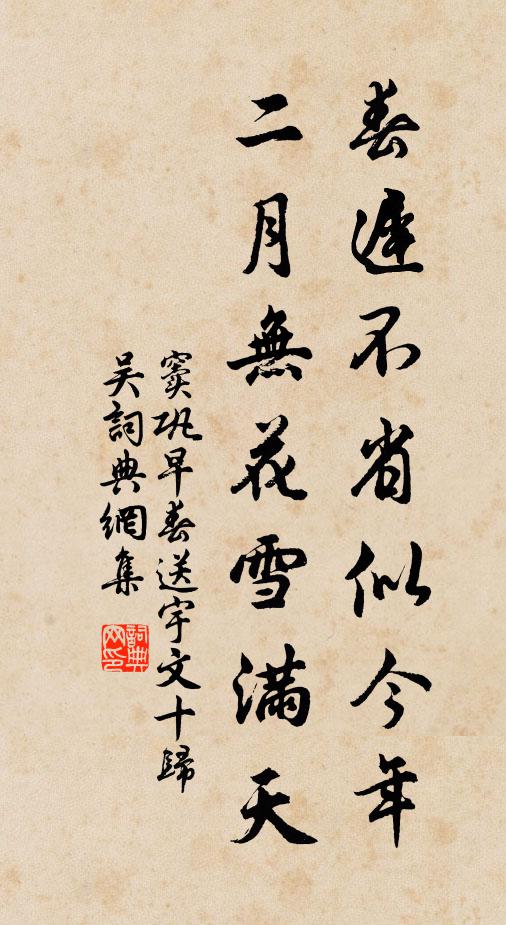 春遲不省似今年
二月無花雪滿天
竇巩早春送宇文十歸
吳詞典網集
詞典网印